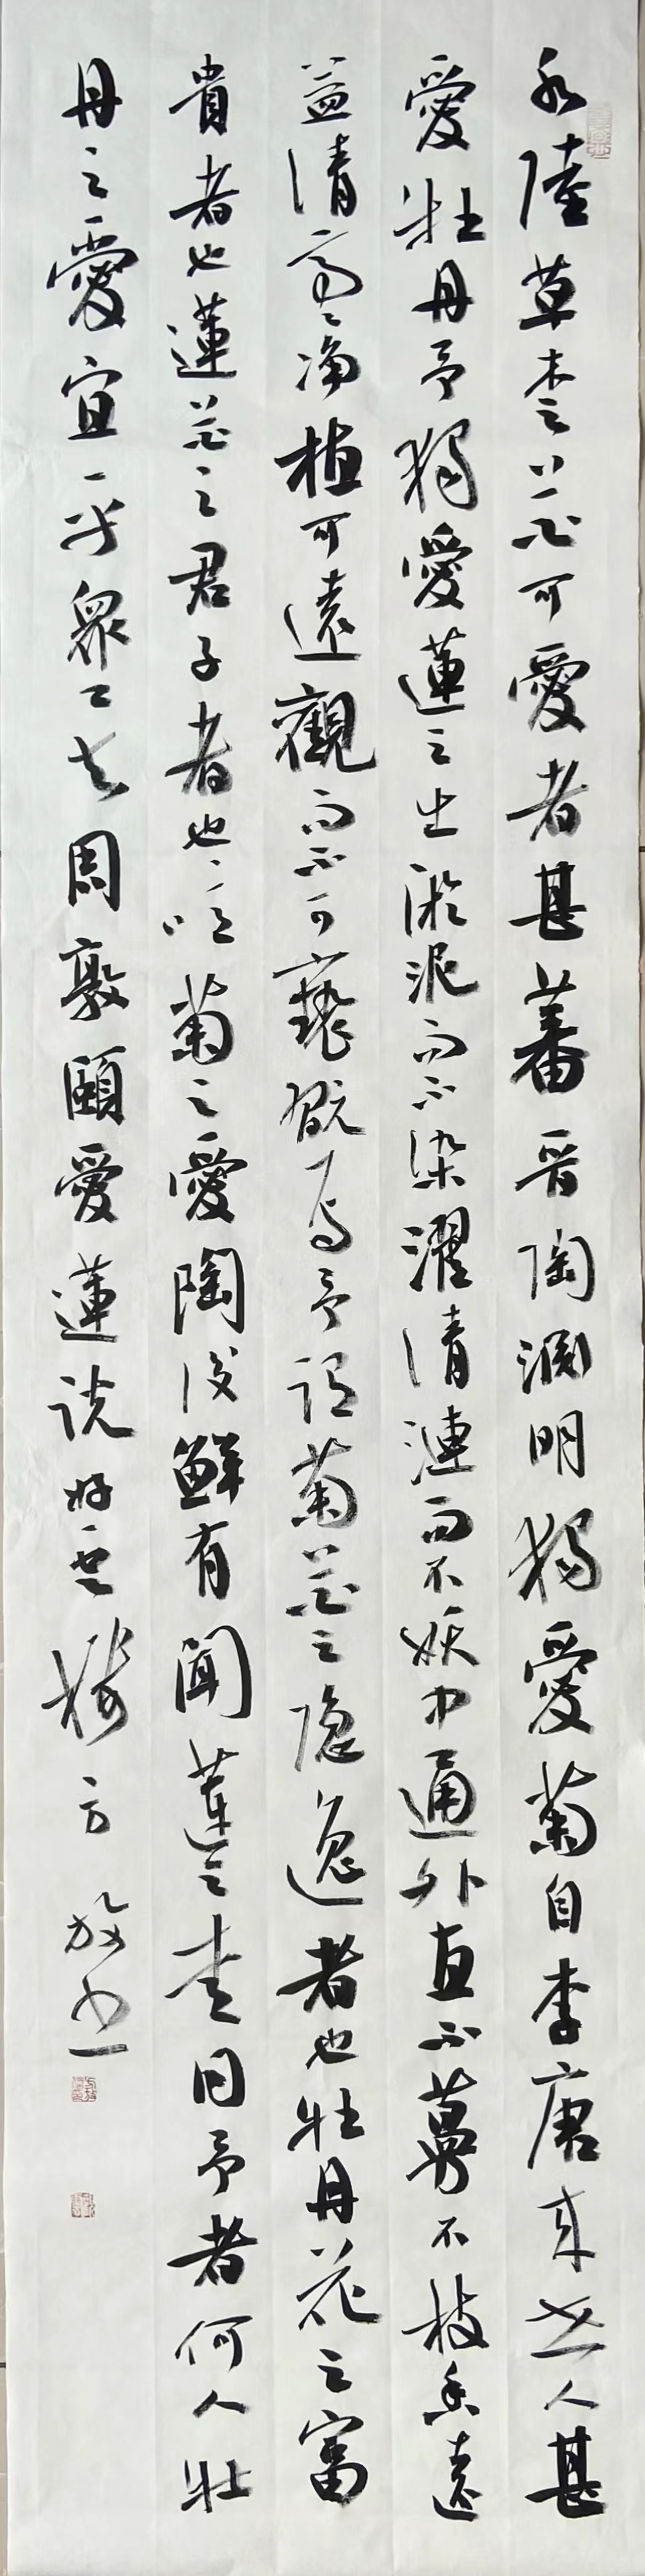 水陸草木之花可愛者甚蕃晋陶淵明獨愛菊自李唐来世人甚
愛牡丹予獨愛蓮之出淤泥而不染濯清漣而不妖中通外直不蔓不枝香遠
益清亭亭净植可遠觀而不可褻翫焉予謂菊花之隐逸者也牡丹花之富
貴者也蓮花之君子者也噫菊之愛陶後鮮有聞蓮之愛同予者何人牡
丹之愛宜乎衆矣周敦頤愛蓮説方放書